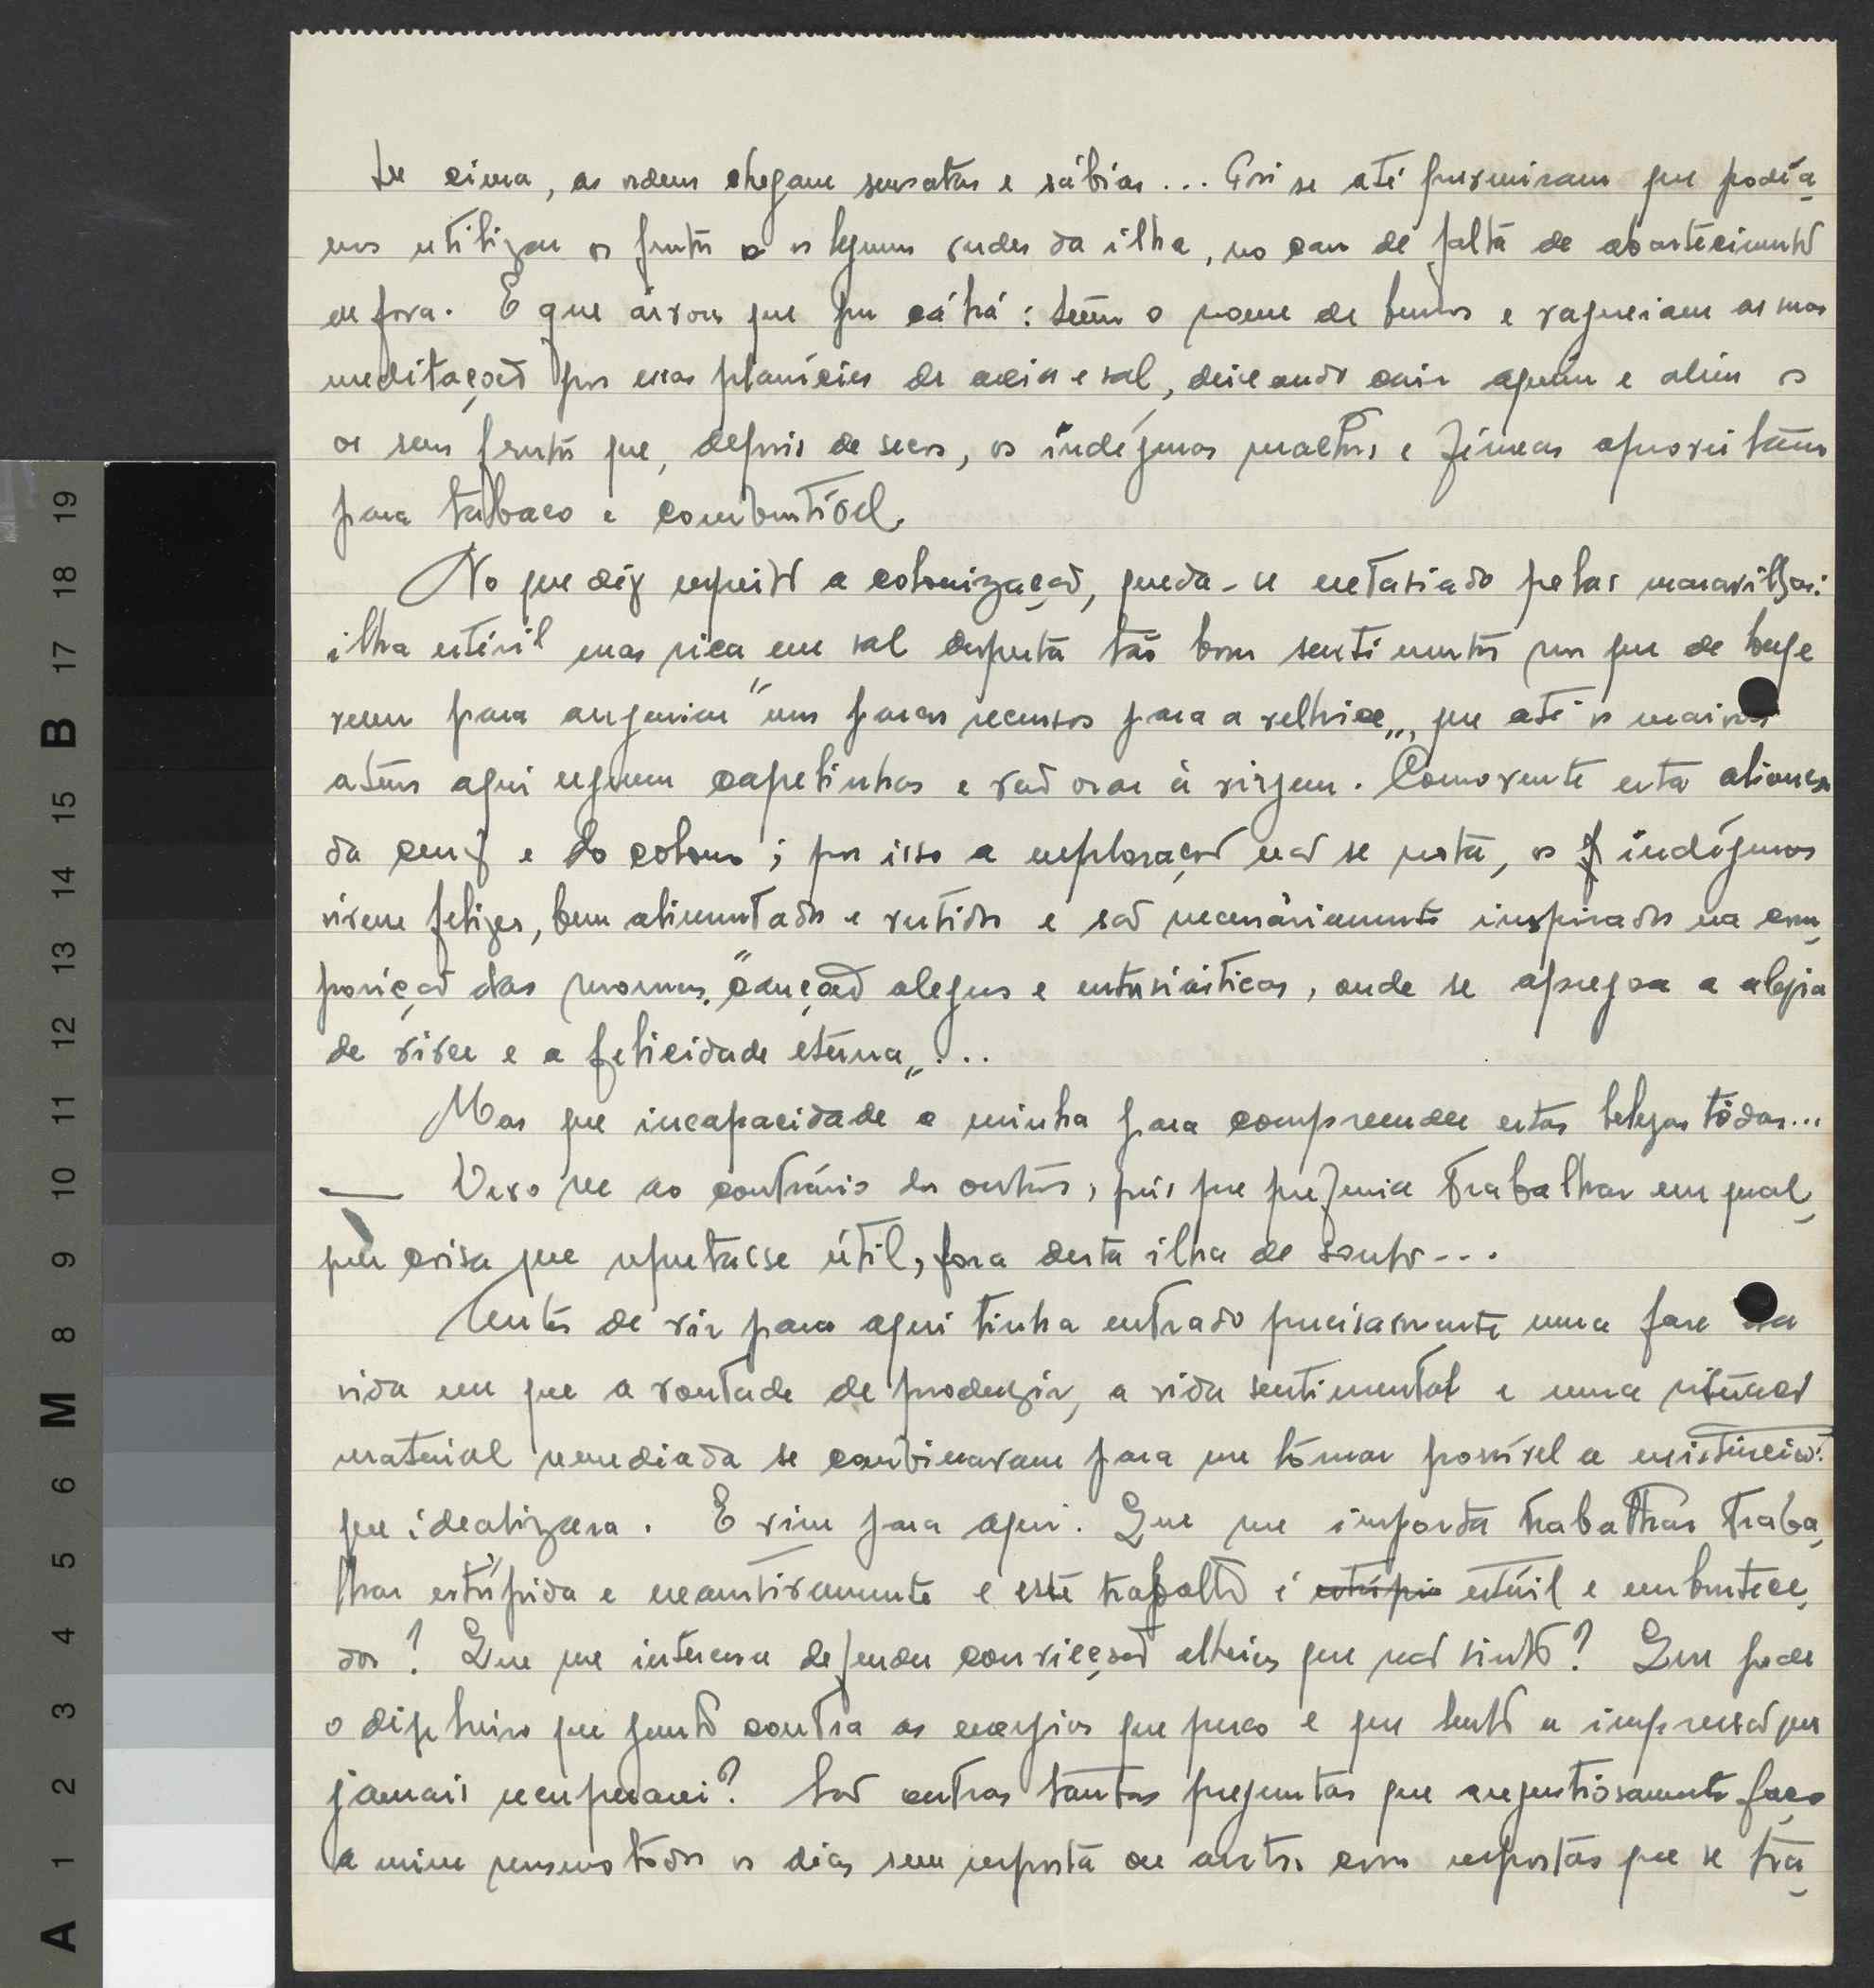 De cima, as ordens chegam sensatas e sábias... Pois se até preveniram que podía-
mos utilizar os frutos e os legumes verdes da ilha, no caso de falta de abastecimento
de fora. E que árvores que por cá há: têem o nome de burros e vagueiam as suas
meditações por essas planícies de areia e sal, deixando cair aquém e além os
os seus frutos que, depois de secos, os indígenas machos e fêmeas aproveitam
para tabaco e combustível.
No que diz respeito a colonização, queda-se extasiado pelas maravilhas:
ilha estéril mas rica em sal desperta tão bons sentimentos nos que de longe
veem para angariar "uns parcos recursos para a velhice", que até os maiores
ateus aqui erguem capelinhas e vão orar à virgem. Comovente esta aliança
da cruz e do colono; por isso a exploração não se nota, os indígenas
vivem felizes, bem alimentados e vestidos e são necessáriamente inspirados na com-
posição das mornas, "canções alegres e entusiásticas, onde se apregoa a alegria
de viver e a felicidade eterna"...
Mas que incapacidade a minha para compreender estas belezas tôdas...
— Devo ser ao contrário dos outros, pois que preferia trabalhar em qual-
quer coisa que reputasse útil, fora desta ilha de sonho...
Antes de vir para aqui tinha entrado precisamente numa fase da
vida em que a vontade de produzir, a vida sentimental e uma situação
material remediada se combinavam para me tornar possível a existência
que idealizara. E vim para aqui. Que me importa trabalhar traba-
lhar estúpida e exaustivamente e este trabalho é estúpi estéril e embrutece-
dor? Que me interessa defender convicções alheias que não sinto? Que pode
o dinheiro que junto contra as energias que perco e que tenho a impressão que
jamais recuperarei? São outras tantas preguntas que angustiosamente faço
a mim mesmo todos os dias sem resposta ou antes com respostas que se tra-